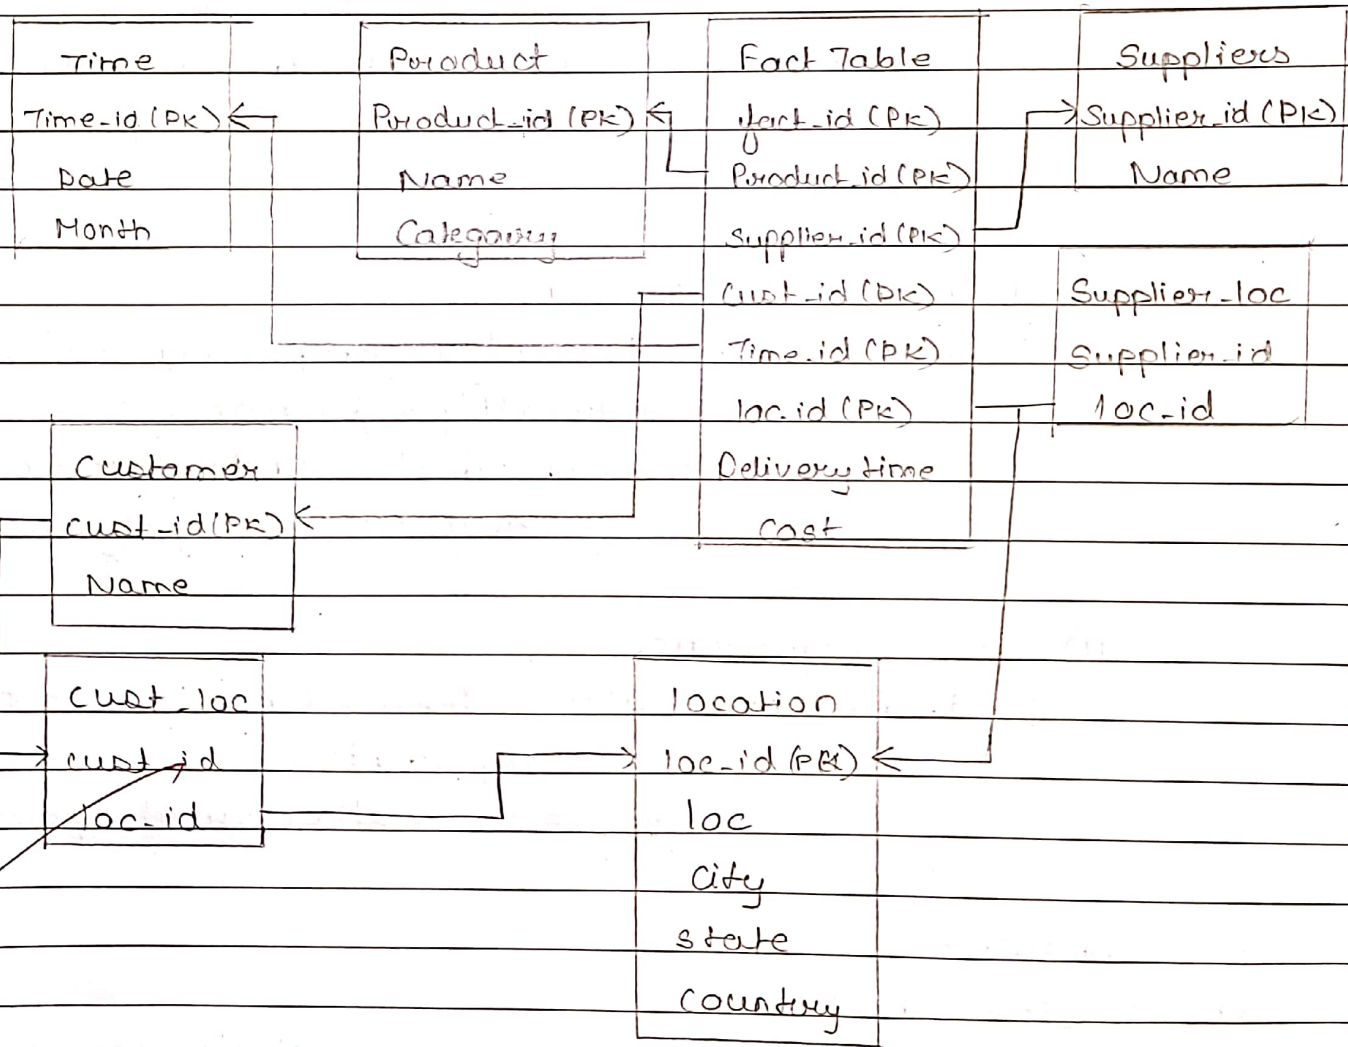 Time
Time-id (PK)
Date
Month
Product
Product-id (PK)
Name
Category
Fact Table
fact-id (PK)
Product-id (PK)
Supplier-id (PK)
Cust-id (PK)
Time-id (PK)
loc-id (PK)
Delivery time
Cost
Suppliers
Supplier-id (PK)
Name
Supplier-loc
Supplier-id
loc-id
Customer
cust-id (PK)
Name
cust-loc
cust-id
loc-id
location
loc-id (PK)
loc
city
state
country